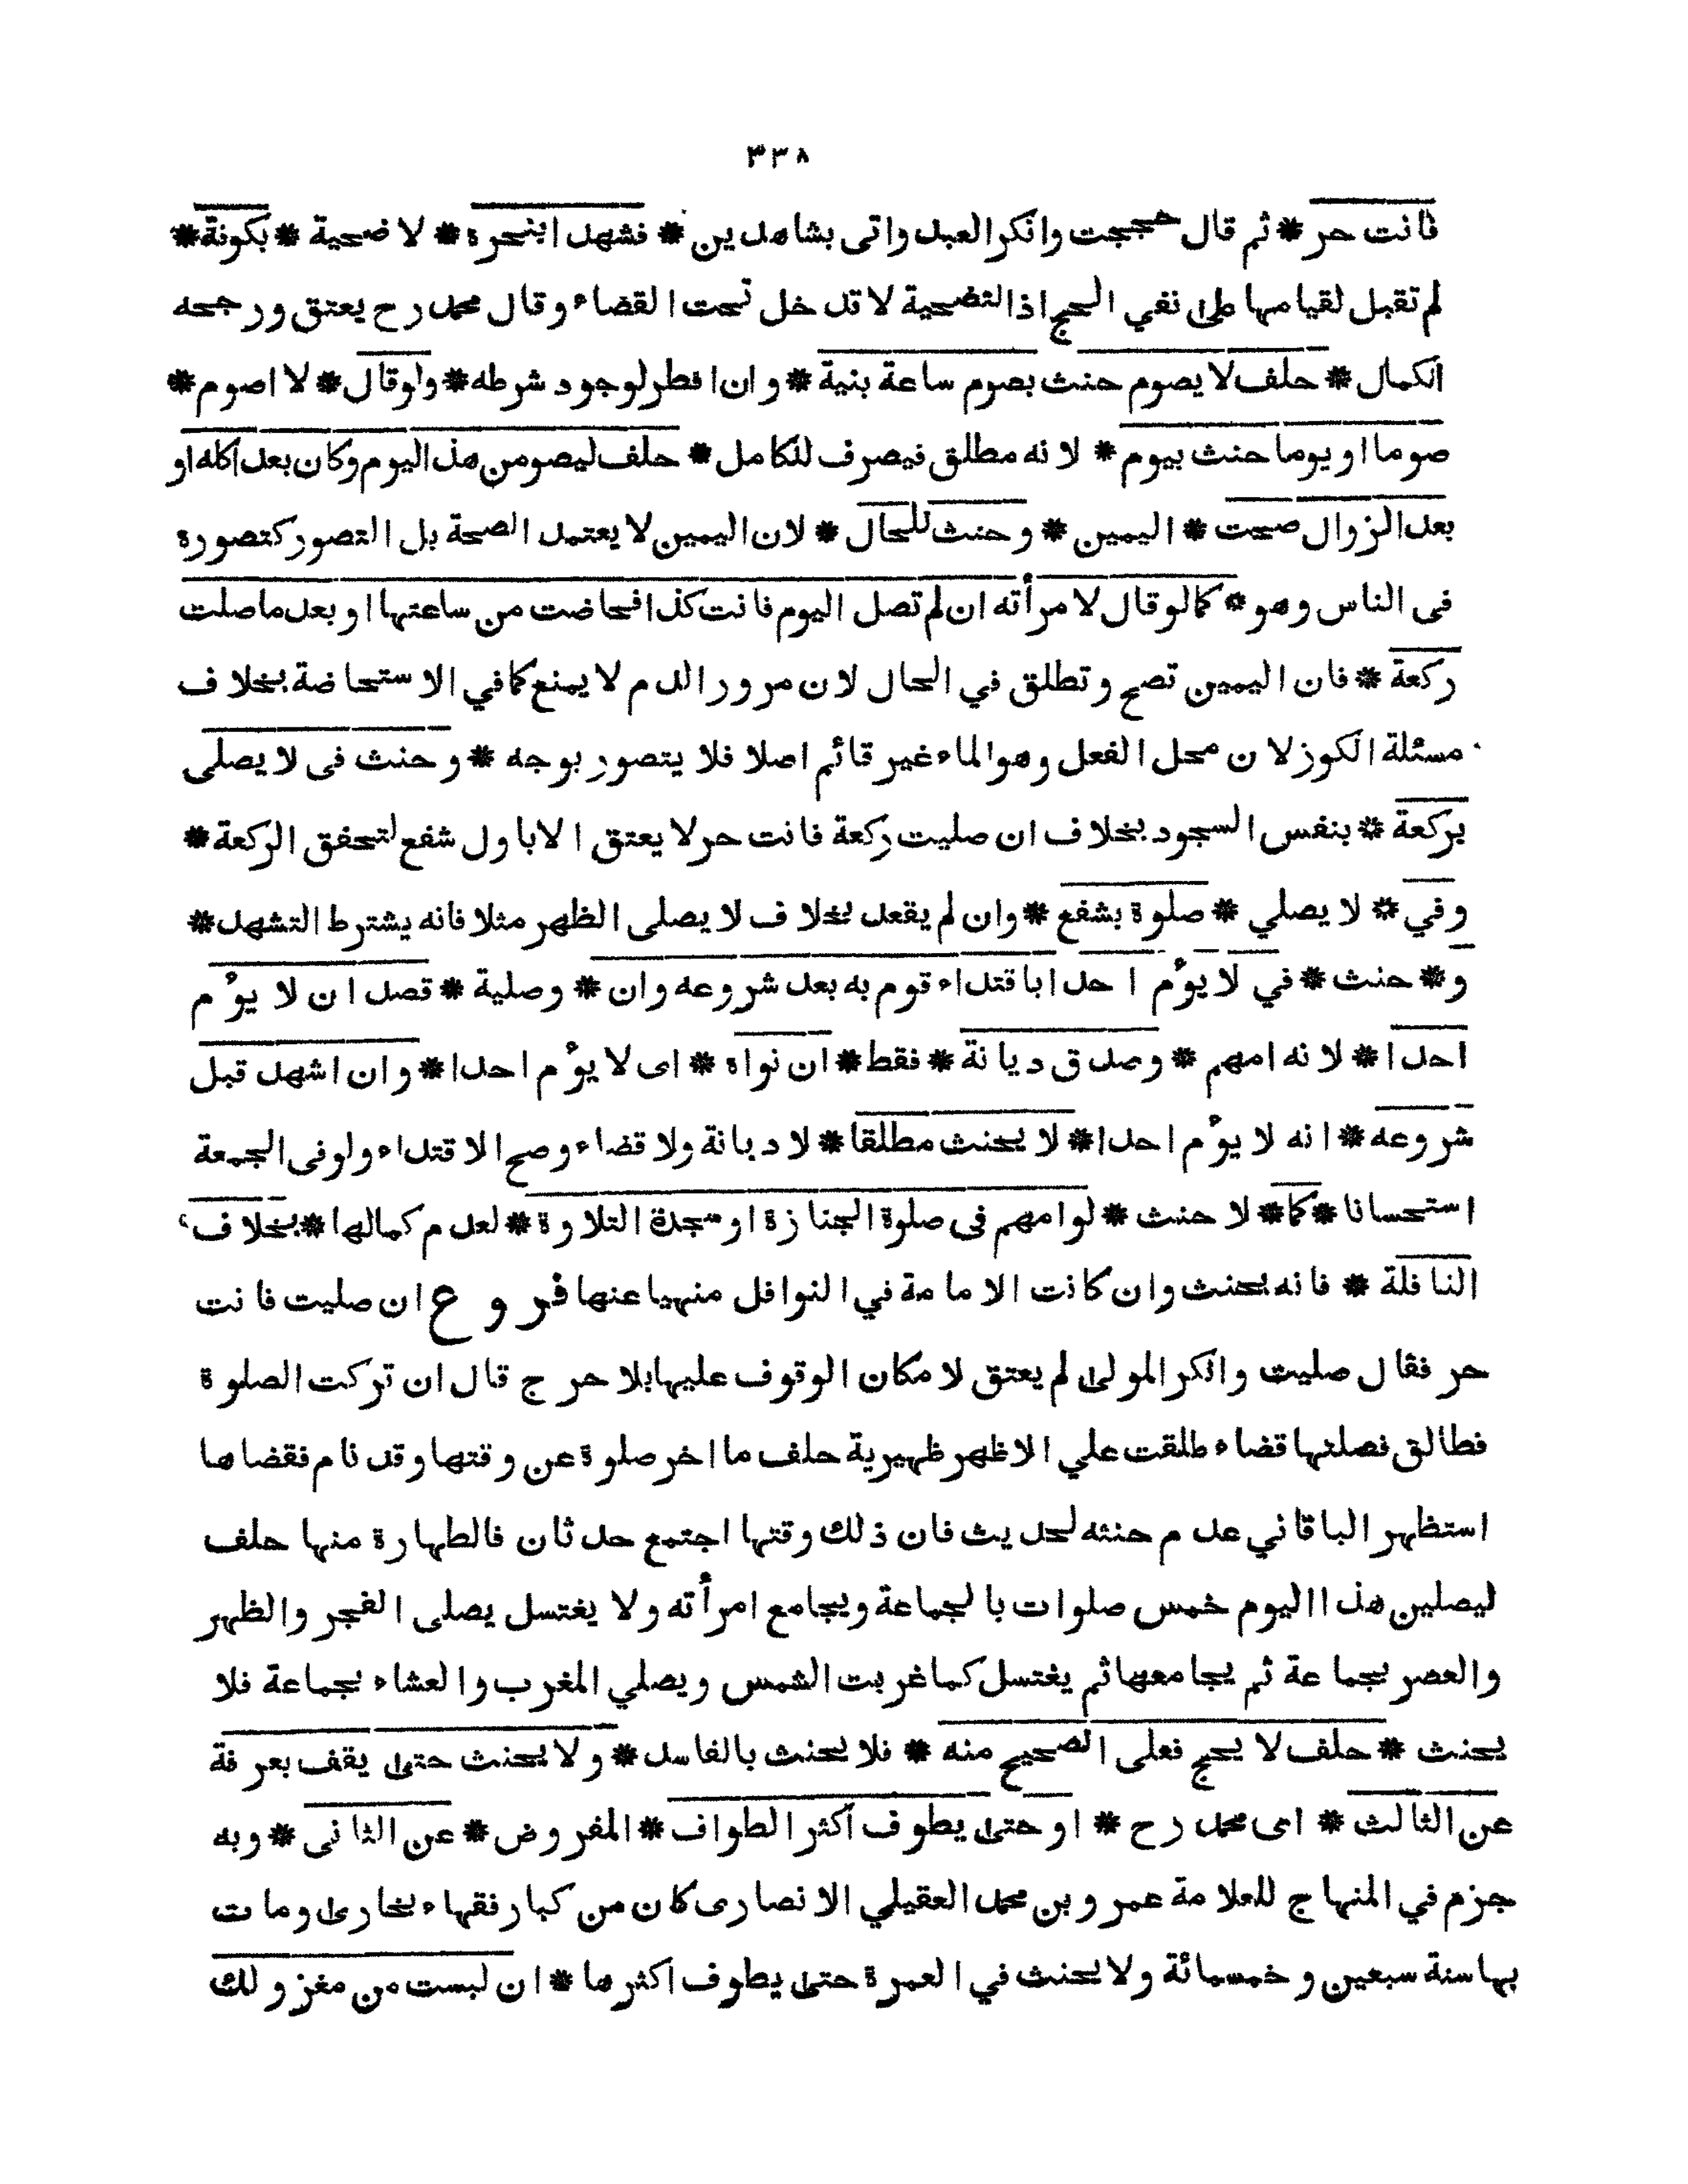 ٣٣٨
فانت حر * ثم قال حججت وانكر العبد واتى بشاهدين * فشهدا بنحره * لاضحية * بكوفة *
لم تقبل لقيامها على نفي الحج اذ التضحية لا تدخل تحت القضاء وقال محمد رح يعتق ورجحه
الكمال * حلف لا يصوم حنث بصوم ساعة بنية * وان افطر لوجود شرطه * ولو قال * لا اصوم *
صوما او يوما حنث بيوم * لانه مطلق فيصرف للكامل * حلف ليصومن هذا اليوم وكان بعد اكله او
بعد الزوال صحت * اليمين * وحنث للحال * لان اليمين لا يعتمد الصحة بل التصور كتصوره
فى الناس وهو * كما لو قال لامرأته ان لم تصل اليوم فانت كذا فحاضت من ساعتها او بعد ما صلت
ركعة * فان اليمين تصح وتطلق في الحال لان مرور الدم لا يمنع كما في الاستحاضة بخلاف
مسئلة الكوز لان محل الفعل وهو الماء غير قائم اصلا فلا يتصور بوجه * وحنث فى لا يصلى
بركعة * بنفس السجود بخلاف ان صليت ركعة فانت حر لا يعتق الا باول شفع لتحقق الركعة *
وفي * لا يصلي * صلوة بشفع * وان لم يقعد بخلاف لا يصلى الظهر مثلا فانه يشترط التشهد *
و * حنث * في لا يؤم احدا باقتداء قوم به بعد شروعه وان * وصلية * قصد ان لا يؤم
احدا * لانه امهم * وصدق ديانة * فقط * ان نواه * اى لا يؤم احدا * وان اشهد قبل
شروعه * انه لا يؤم احدا * لا يحنث مطلقا * لا ديانة ولا قضاء وصح الاقتداء ولو فى الجمعة
استحسانا * كما * لا حنث * لو امهم فى صلوة الجنازة او سجدة التلاوة * لعدم كمالها * بخلاف
النافلة * فانه يحنث وان كانت الامامة في النوافل منهيا عنها فروع ان صليت فانت
حر فقال صليت وانكر المولى لم يعتق لامكان الوقوف عليها بلا حرج قال ان تركت الصلوة
فطالق فصلتها قضاء طلقت علي الاظهر ظهيرية حلف ما اخر صلوة عن وقتها وقد نام فقضاها
استظهر الباقاني عدم حنثه لحديث فان ذلك وقتها اجتمع حدثان فالطهارة منها حلف
ليصلين هذا اليوم خمس صلوات بالجماعة ويجامع امرأته ولا يغتسل يصلى الفجر والظهر
والعصر بجماعة ثم يجامعها ثم يغتسل كما غربت الشمس ويصلي المغرب والعشاء بجماعة فلا
يحنث * حلف لا يحج فعلى الصحيح منه * فلا يحنث بالفاسد * ولا يحنث حتى يقف بعرفة
عن الثالث * اى محمد رح * او حتى يطوف اكثر الطواف * المفروض * عن الثانى * وبه
جزم في المنهاج للعلامة عمرو بن محمد العقيلي الانصارى كان من كبار فقهاء بخارى ومات
بها سنة سبعين وخمسمائة ولا يحنث في العمرة حتى يطوف اكثرها * ان لبست من مغزولك